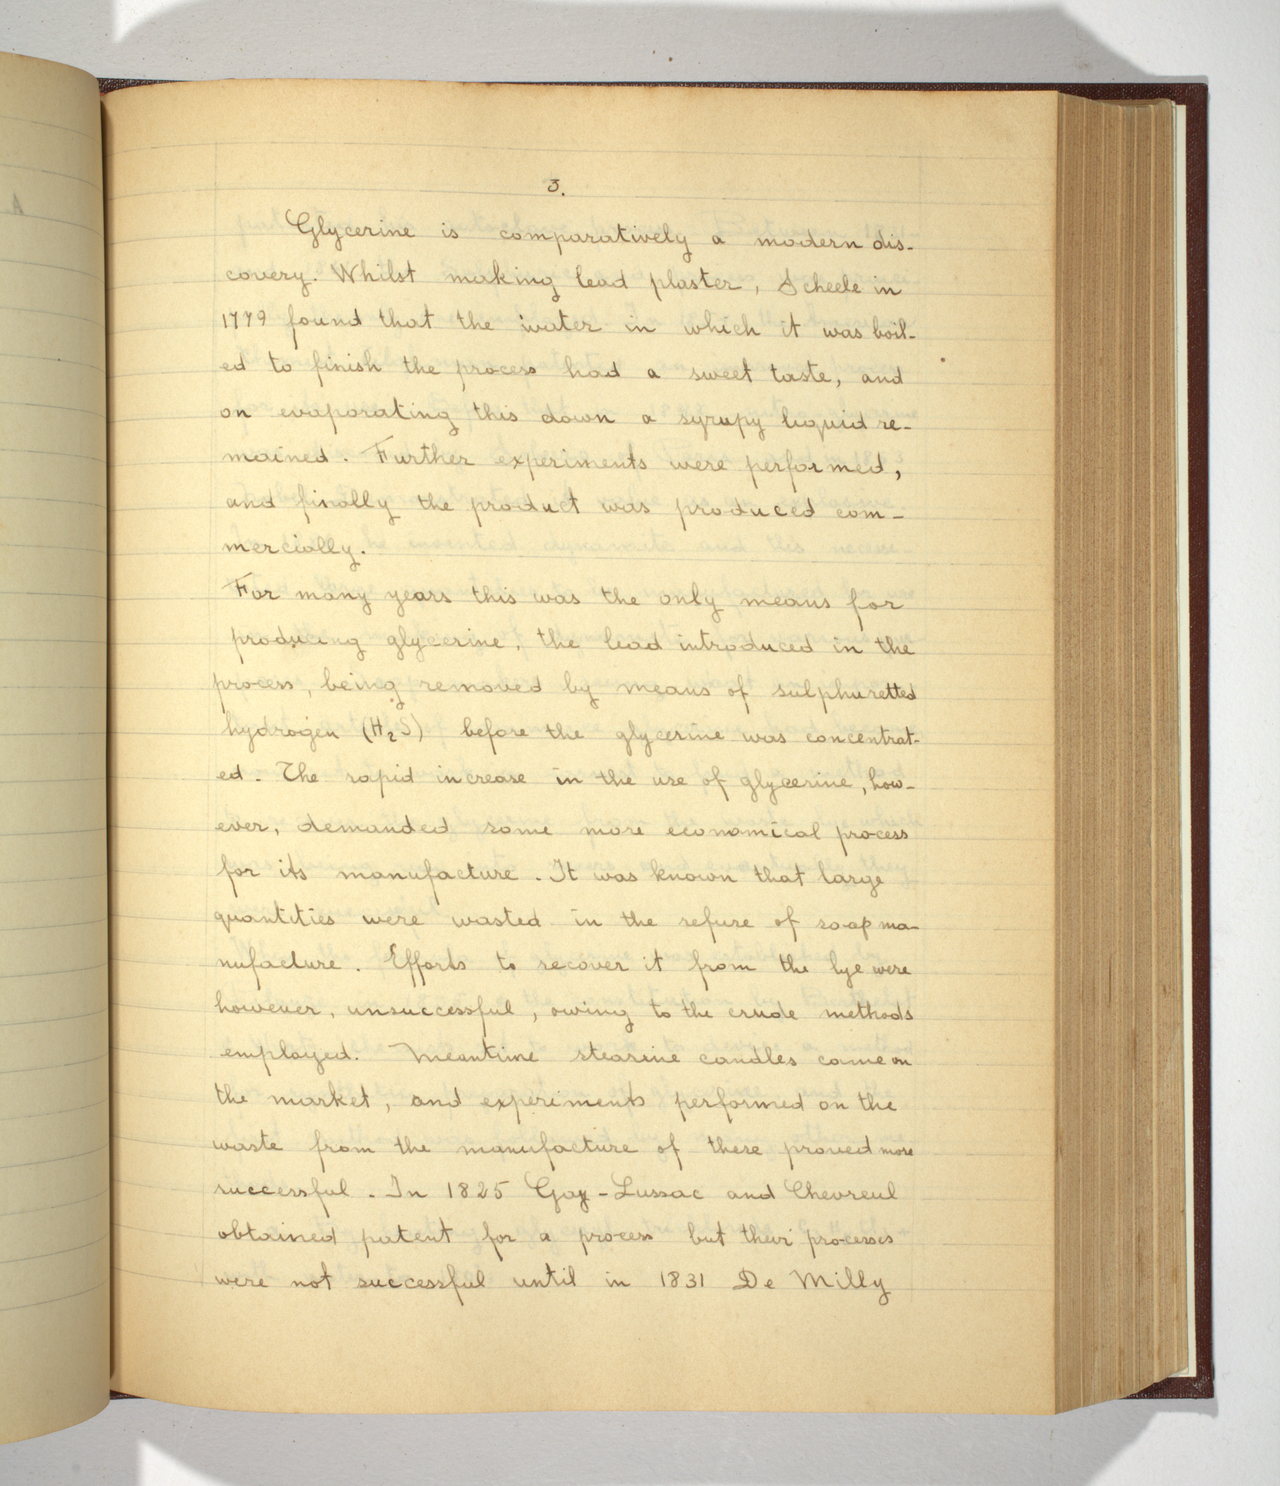 3.
Glycerine is comparatively a modern dis-
covery. Whilst making lead plaster, Scheele in
1779 found that the water in which it was boil-
ed to finish the process had a sweet taste, and
on evaporating this down a syrupy liquid re-
mained. Further experiments were performed,
and finally the product was produced com-
mercially.
For many years this was the only means for
producing glycerine, the lead introduced in the
process, being removed by means of sulphuretted
hydrogen (H2S) before the glycerine was concentrat-
ed. The rapid increase in the use of glycerine, how-
ever, demanded some more economical process
for its manufacture. It was known that large
quantities were wasted in the refuse of soap ma-
nufacture. Efforts to recover it from the lye were
however, unsuccessful, owing to the crude methods
employed. Meantime stearine candles came on
the market, and experiments performed on the
waste from the manufacture of these proved more
successful. In 1825 Gay-Lussac and Chevreul
obtained patent for a process but their processes
were not successful until in 1831 De Milly